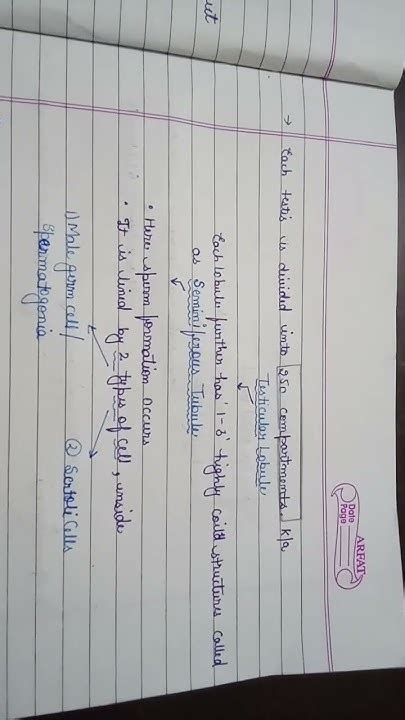 uct
ARFAT
Date
Page
→ Each testis is divided into 250 compartments. k/a
Testicular Lobule
Each lobule further has '1-3' highly coild structures called
as Seminiferous Tubule
• Here sperm formation occurs
• It is lined by 2 types of cell, inside
1) Male germ cell /
Spermatogonia
② Sertoli Cells